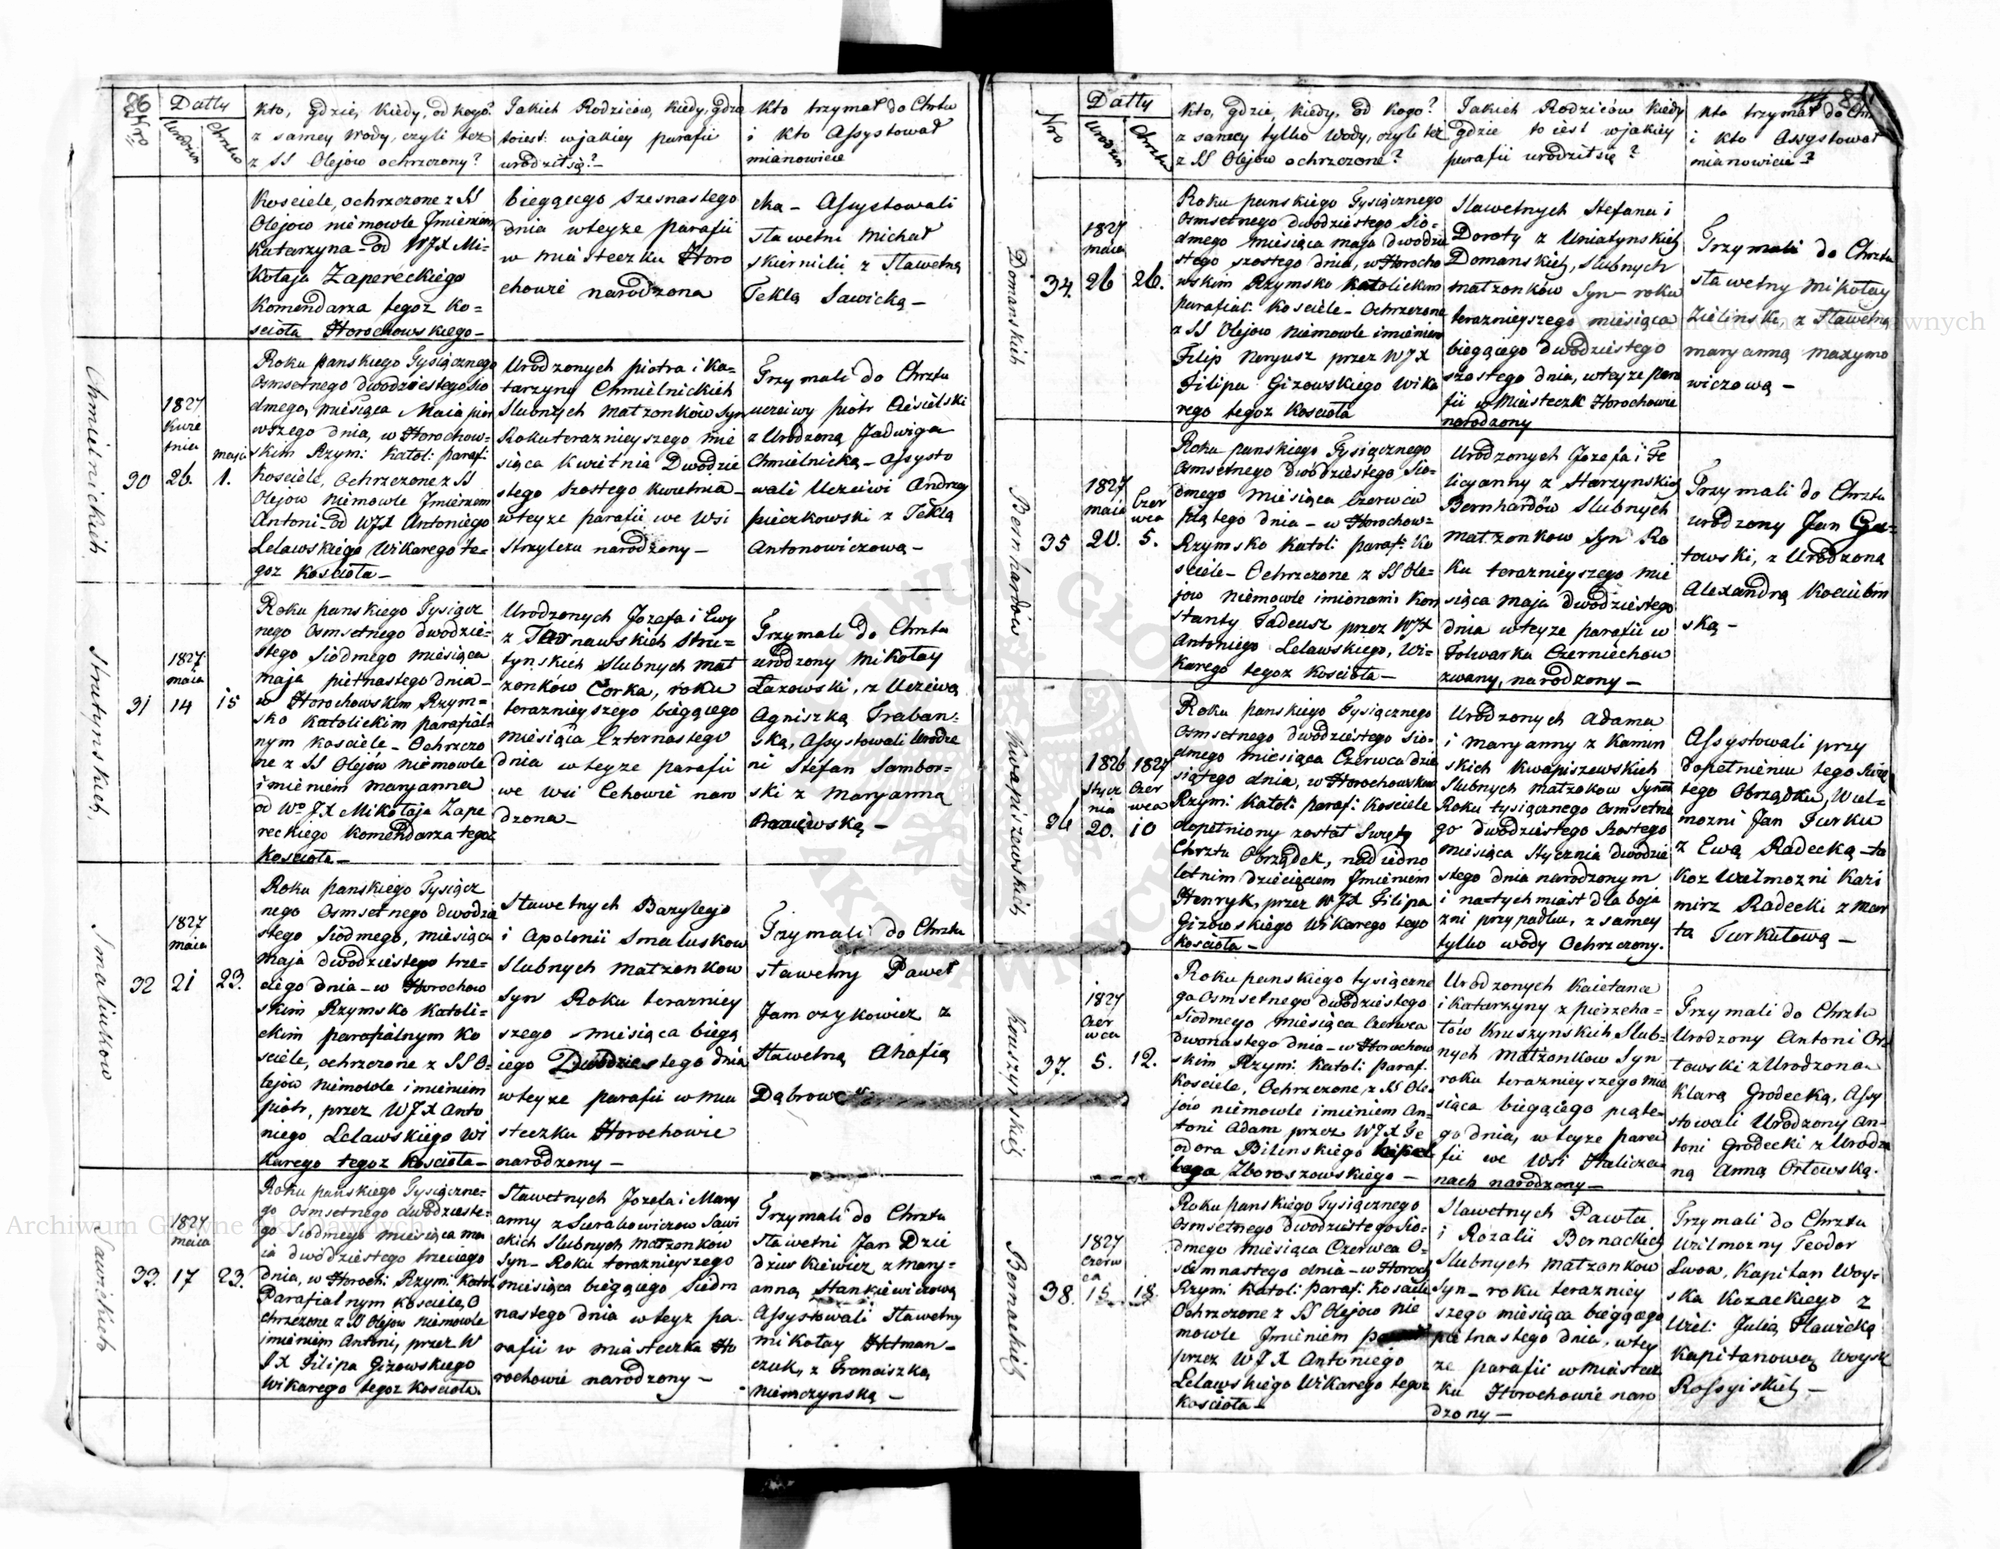 Nro
Datty
Urodzin
Chrztu
Kto, gdzie, kiedy, od kogo?
z samey wody, czyli też
z SS Olejow ochrzczony?
Jakich Rodziców, kiedy, gdzie
toiest: w jakiey parafii
urodził się?
Kto trzymał do Chrztu
i kto Assystował
mianowicie
Kosciele, ochrzczone z SS
Olejow niemowle Jmieniem
Katarzyna od WJX Mi=
kołaja Zapereckiego
Komendarza tegoz Ko=
scioła Horochowskiego
biegącego szesnastego
dnia w teyze parafii
w miasteczku Horo
chowie narodzona
cka – Assystowali
Sławetni Michał
Skiernicki z Sławetną
Teklą Sawicką –
Chmielnickich
30
1827
kwie
tnia
26.
maja
1.
Roku panskiego Tysiącznego
Osmsetnego dwodziestego Sio
dmego, miesiąca Maia pier
wszego dnia, w Horochow=
skim Rzym: Katol: parafi:
Kosciele, Ochrzczone z SS
Olejow niemowle Jmieniem
Antoni od WJX Antoniego
Lelawskiego Wikarego te=
goz Koscioła –
Urodzonych piotra i Ka=
tarzyny Chmielnickich
Slubnych matzonków Syn
Roku terazniejszego mie
siąca Kwietnia Dwodzie
stego Szostego Kwietnia
w teyze parafii we Wsi
Strzylcza narodzony –
Trzymali do Chrztu
uczciwy piotr Ciesielski
z Urodzoną Jadwigą
Chmielnicką – Assysto
wali Uczciwi Andrzey
pieczkowski z Teklą
Antonowiczową –
Strutynskich
31
1827
maia
14
15
Roku panskiego Tysiącz
nego Osmsetnego dwodzie=
stego Siodmego miesiąca
maja pietnastego dnia –
w Horochowskim Rzym=
sko Katolickim parafial=
nym Kosciele – Ochrzczo
ne z SS Olejów niemowle
imieniem maryanna
od Wo JX Mikołaja Zape
reckiego Komendarza tegoz
Koscioła –
Urodzonych Jozefa i Ewy
z Tarnawskich Stru=
tynskich Slubnych mat
zonków Córka, roku
terazniejszego biegącego
miesiąca Czternastego
dnia w teyze parafii
we Wsi Cehowie naro
dzona –
Trzymali do Chrztu
urodzony Mikołay
Łazowski, z Uczciwą
Agniszką Traban=
ską, Assystowali Urodze
ni Stefan Sambor=
ski z Maryanną
Smaluikow
32
1827
maia
21
23.
Roku panskiego Tysiącz
nego Osmsetnego dwodzie
stego Siodmego, miesiąca
maja dwodziestego trze=
ciego dnia – w Horochow
skim Rzymsko Katoli=
ckim parafialnym Ko
sciele, ochrzczone z SS O=
lejów niemowle imieniem
piotr, przez WJX Anto
niego Lelawskiego Wi
karego tegoz Koscioła –
Sławetnych Bazylego
i Apolonii Smaluskow
Slubnych matzonkow
Syn Roku terazniey
szego miesiąca biegą
cego Dwodziestego dnia
w teyze parafii w mia
steczku Horochowie
narodzony –
Trzymali do Chrztu
Sławetny Paweł
Jamczykowicz z
Sławetną Ahafią
Dąbrow
Sawickich
33.
1827
maia
17
23.
Roku panskiego Tysiączne=
go Osmsetnego dwodzieste=
go Siodmego miesiąca ma
ia dwodziestego trzeciego
dnia, w Horoch: Rzym: Katol:
Parafialnym Kosciele, O
chrzczone z SS Olejow niemowle
imieniem Antoni, przez W
JX Filipa Gizowskiego
Wikarego tegoz Koscioła
Sławetnych Jozefa i Mary
anny z Surabowiczow Sawi
ckich Slubnych matzonków
Syn – Roku terazniejszego
miesiąca biegącego Siedm
nastego dnia w teyz pa=
rafii w miasteczku Ho
rochowie narodzony –
Trzymali do Chrztu
Sławetni Jan Dzie
dziuskiewicz z mary=
anną Stankiewiczową
Assystowali Sławetny
Mikołay Hetman=
czuk, z Franciszką
Niemczynską –
Nro
Datty
Urodzin
Chrztu
Kto, gdzie, kiedy, od kogo?
z samey tylko Wody, czyli też
z SS Olejow ochrzczone?
Jakich Rodziców kiedy
gdzie to iest w jakiey
parafii urodził się?
Kto trzymał do Chrz
i kto Assystował
mianowicie?
Domanskich
34.
1827
maia
26
26.
Roku panskiego Tysiącznego
Osmsetnego dwodziestego Sio=
dmego miesiąca maja dwodzie
stego szostego dnia, w Horocho
wskim Rzymsko Katolickim
parafial: Kosciele – Ochrzczone
z SS Olejow niemowle imieniem
Filip Neryusz przez WJX
Filipa Gizowskiego Wika
rego tegoz Koscioła
Sławetnych Stefana i
Doroty z Uniatynskich
Domanskich, Slubnych
matzonków Syn – roku
terazniejszego miesiąca
biegącego dwodziestego
szostego dnia, w teyze para
fii w Miasteczk Horochowie
narodzony
Trzymali do Chrztu
Sławetny Mikołay
Zielinski, z Sławetną
maryanną Maxymo
wiczową –
Bernhardów
35
1827
maia
20.
Czer
wca
5.
Roku panskiego Tysiącznego
Osmsetnego dwodziestego Sio=
dmego miesiąca Czerwca
piątego dnia – w Horochow=
Rzymsko Katol: parafi: Ko
sciele – Ochrzczone z SS Ole=
jow niemowle imionami Kon
stanty Tadeusz przez WJX
Antoniego Lelawskiego, Wi=
karego tegoz Koscioła –
Urodzonych Jozefa i Fe
licyanny z Starzynskich
Bernhardów Slubnych
matzonkow Syn Ro
ku terazniejszego mie
siąca maja dwodziestego
dnia w teyze parafii w
Folwarku Czerniechow
zwany, narodzony –
Trzymali do Chrztu
urodzony Jan Ga=
towski, z Urodzoną
Alexandrą Kociubin
ską –
Kwapiszewskich
36
1826
Stycz
nia
20.
1827
Czer
wca
10
Roku panskiego Tysiącznego
Osmsetnego dwodziestego Sio=
dmego miesiąca Czerwca dzie
siątego dnia, w Horochowskim
Rzym: Katol: parafi: Kosciele
dopełniony został Swięty
Chrztu Obrządek, nad iedno
letnim dziecięciem Jmieniem
Henryk, przez WJX Filipa
Gizowskiego Wikarego tego
Koscioła –
Urodzonych Adama
i maryanny z Kamin
skich Kwapiszewskich
Slubnych matzokow Synem
Roku tysiącznego Osmsetne
go dwodziestego Szostego
miesiąca Stycznia dwodzie
stego dnia narodzonym
i natychmiast dla boja
zni przypadku, z samey
tylko wody Ochrzczony.
Assystowali przy
dopełnieniu tego Swię
tego Obrządku, Wiel=
mozni Jan Turkuł
z Ewą Radecką – ta
koz Wielmozni Kazi
mirz Radecki z Mar
tą Turkułową –
Kruszynskich
37.
1827
Czer
wca
5.
12.
Roku panskiego tysiączne
go Osmsetnego dwodziestego
Siodmego miesiąca Czerwca
Dwonastego dnia – w Horochow
skim Rzym: Katol: paraf:
Kosciele, Ochrzczone z SS Ole
jów niemowle imieniem An=
toni Adam przez WJX Te
odora Bilinskiego
Zboroszowskiego –
Urodzonych Kaietana
i Katarzyny z pierzcha=
łów Kruszynskich Slub=
nych Matzonkow Syn
roku terazniejszego mie
siąca biegącego piąte=
go dnia, w teyze para
fii we Wsi Halicza
nach narodzony –
Trzymali do Chrztu
Urodzony Antoni Or
łowski z Urodzoną
Klarą Grodecką, Assy
stowali Urodzony An=
toni Grodecki z Urodzo
ną Anną Orłewską.
Bernackich
38.
1827
Czerw
ca
15
18.
Roku panskiego Tysiącznego
Osmsetnego dwodziestego Sio=
dmego miesiąca Czerwca O=
siemnastego dnia – w Horoch
Rzym: Katol: Paraf: Kosciele
Ochrzczone z SS Olejow nie
mowle Jmieniem
przez WJX Antoniego
Lelawskiego Wikarego tegoz
Koscioła –
Sławetnych Pawła
i Rozalii Bernackich
Slubnych matzonkow
Syn – roku terazniey
szego miesiąca biegącego
pietnastego dnia, w tey
ze parafii w Miastecz
ku Horochowie naro
dzony –
Trzymali do Chrztu
Wielmozny Teodor
Lwow, Kapitan Woy=
ska Kozackiego z
Wiel: Julią Sławicką
Kapitanową Woysk
Rossyiskich –
Archiwum Główne Akt Dawnych
Archiwum Główne Akt Dawnych
ARCHIWUM GŁÓWNE
AKT DAWNYCH